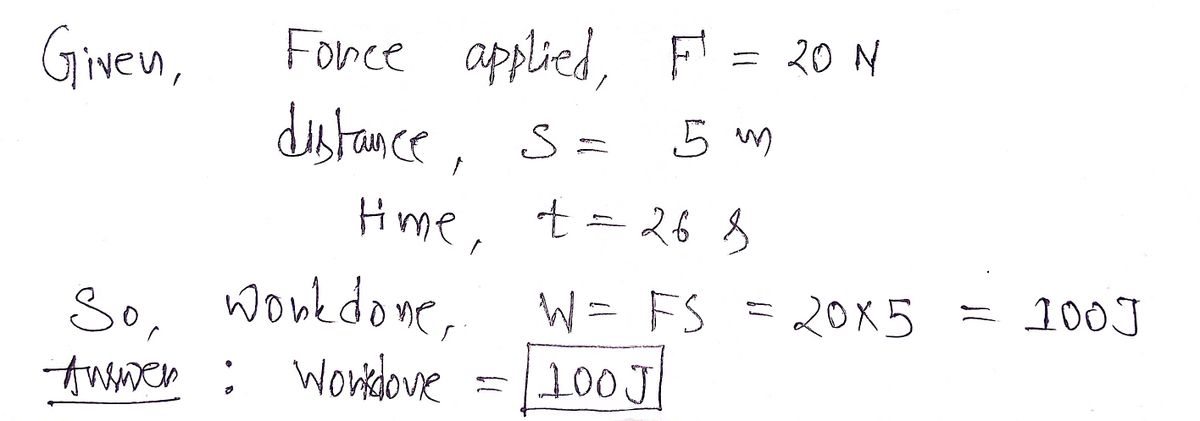 Given, Force applied, F = 20 N
distance, S = 5 m
time, t = 26 s
So, workdone, W = FS = 20×5 = 100J
Answer : Workdone = 100 J